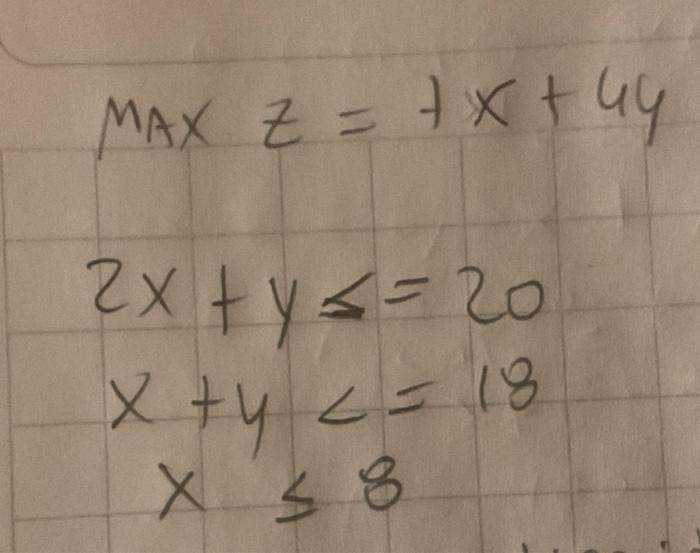 MAX Z = 7x + 4y
2x + y ≤= 20
x + y <= 18
x ≤ 8